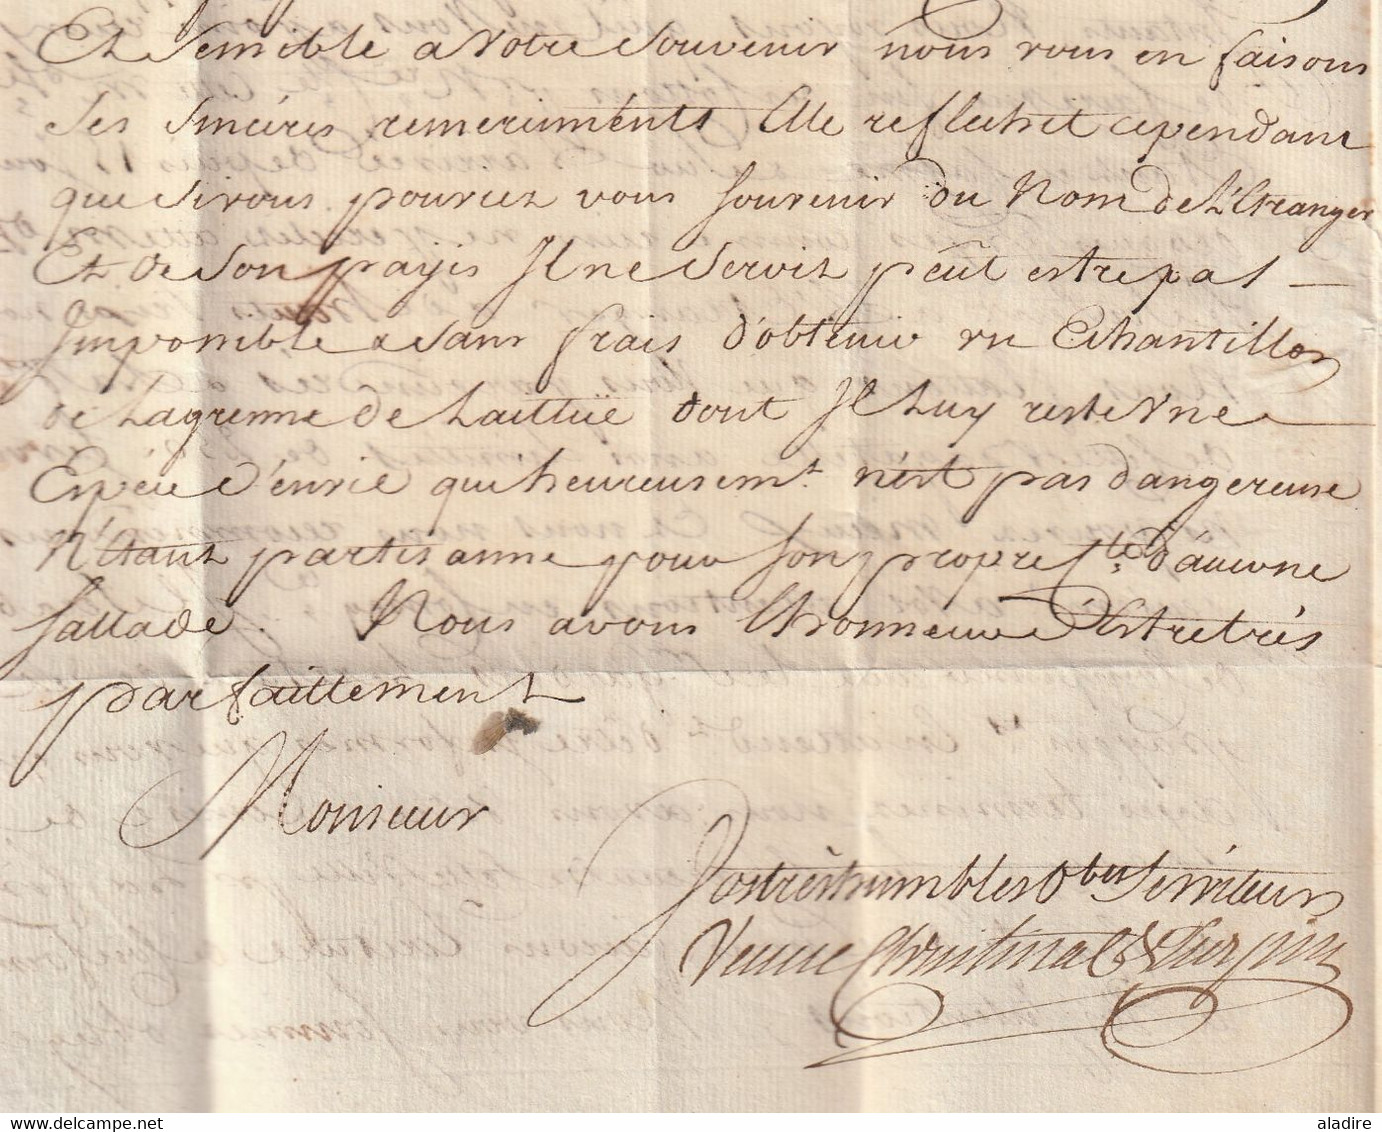 Et Sensible a Votre Souvenir nous vous en faisons
Ses Sincéres remerciments Elle reflechit cependant
que Si vous pouviez vous Souvenir Du Nom De L'Etranger
Et De Son payis Il ne Seroit peût estre pas
Impossible & Sans frais d'obtenir un Echantillon
de La grenne de Laittüe dont Il Luy reste Vne
Espéce D'envie qui heureusemt. n'est pas dangereuse
N'Etant partisanne pour Son propre Cte. d'aucune
Sallade. Nous avons L'honneur d'Estre trés
parfaittement
Monsieur
Vos trés humbles Obts Serviteurs
Veuve Christina &
www.delcampe.net
aladire